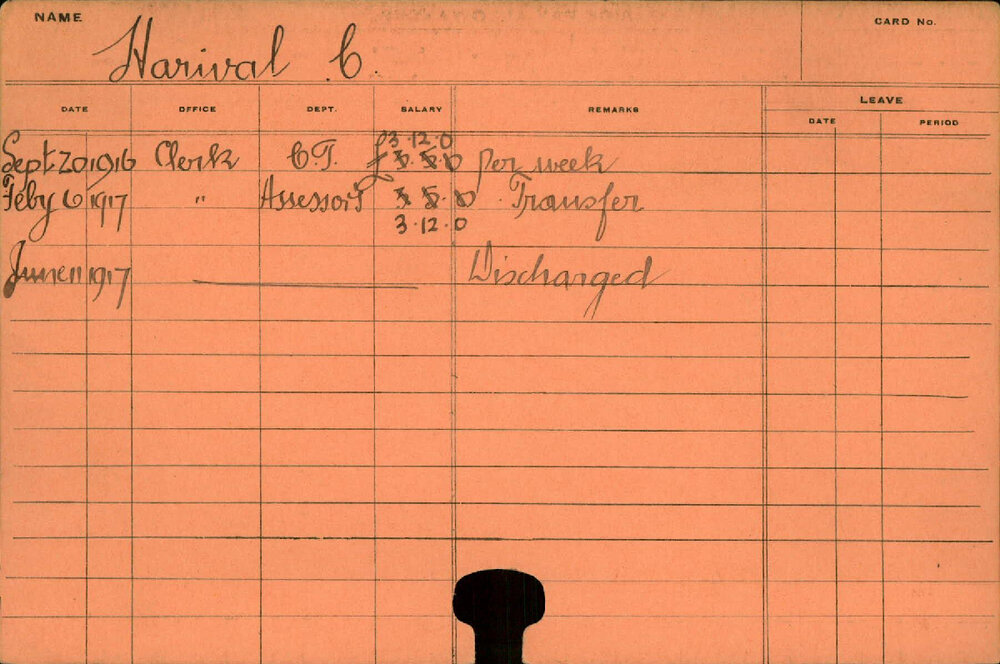 NAME
CARD No.
Harival C.
DATE OFFICE DEPT. SALARY REMARKS LEAVE
DATE PERIOD
3.12.0
Sept 20 1916 Clerk C.T. £ per week
Feby 6 1917 " Assessors Transfer
3.12.0
June 11 1917 Discharged